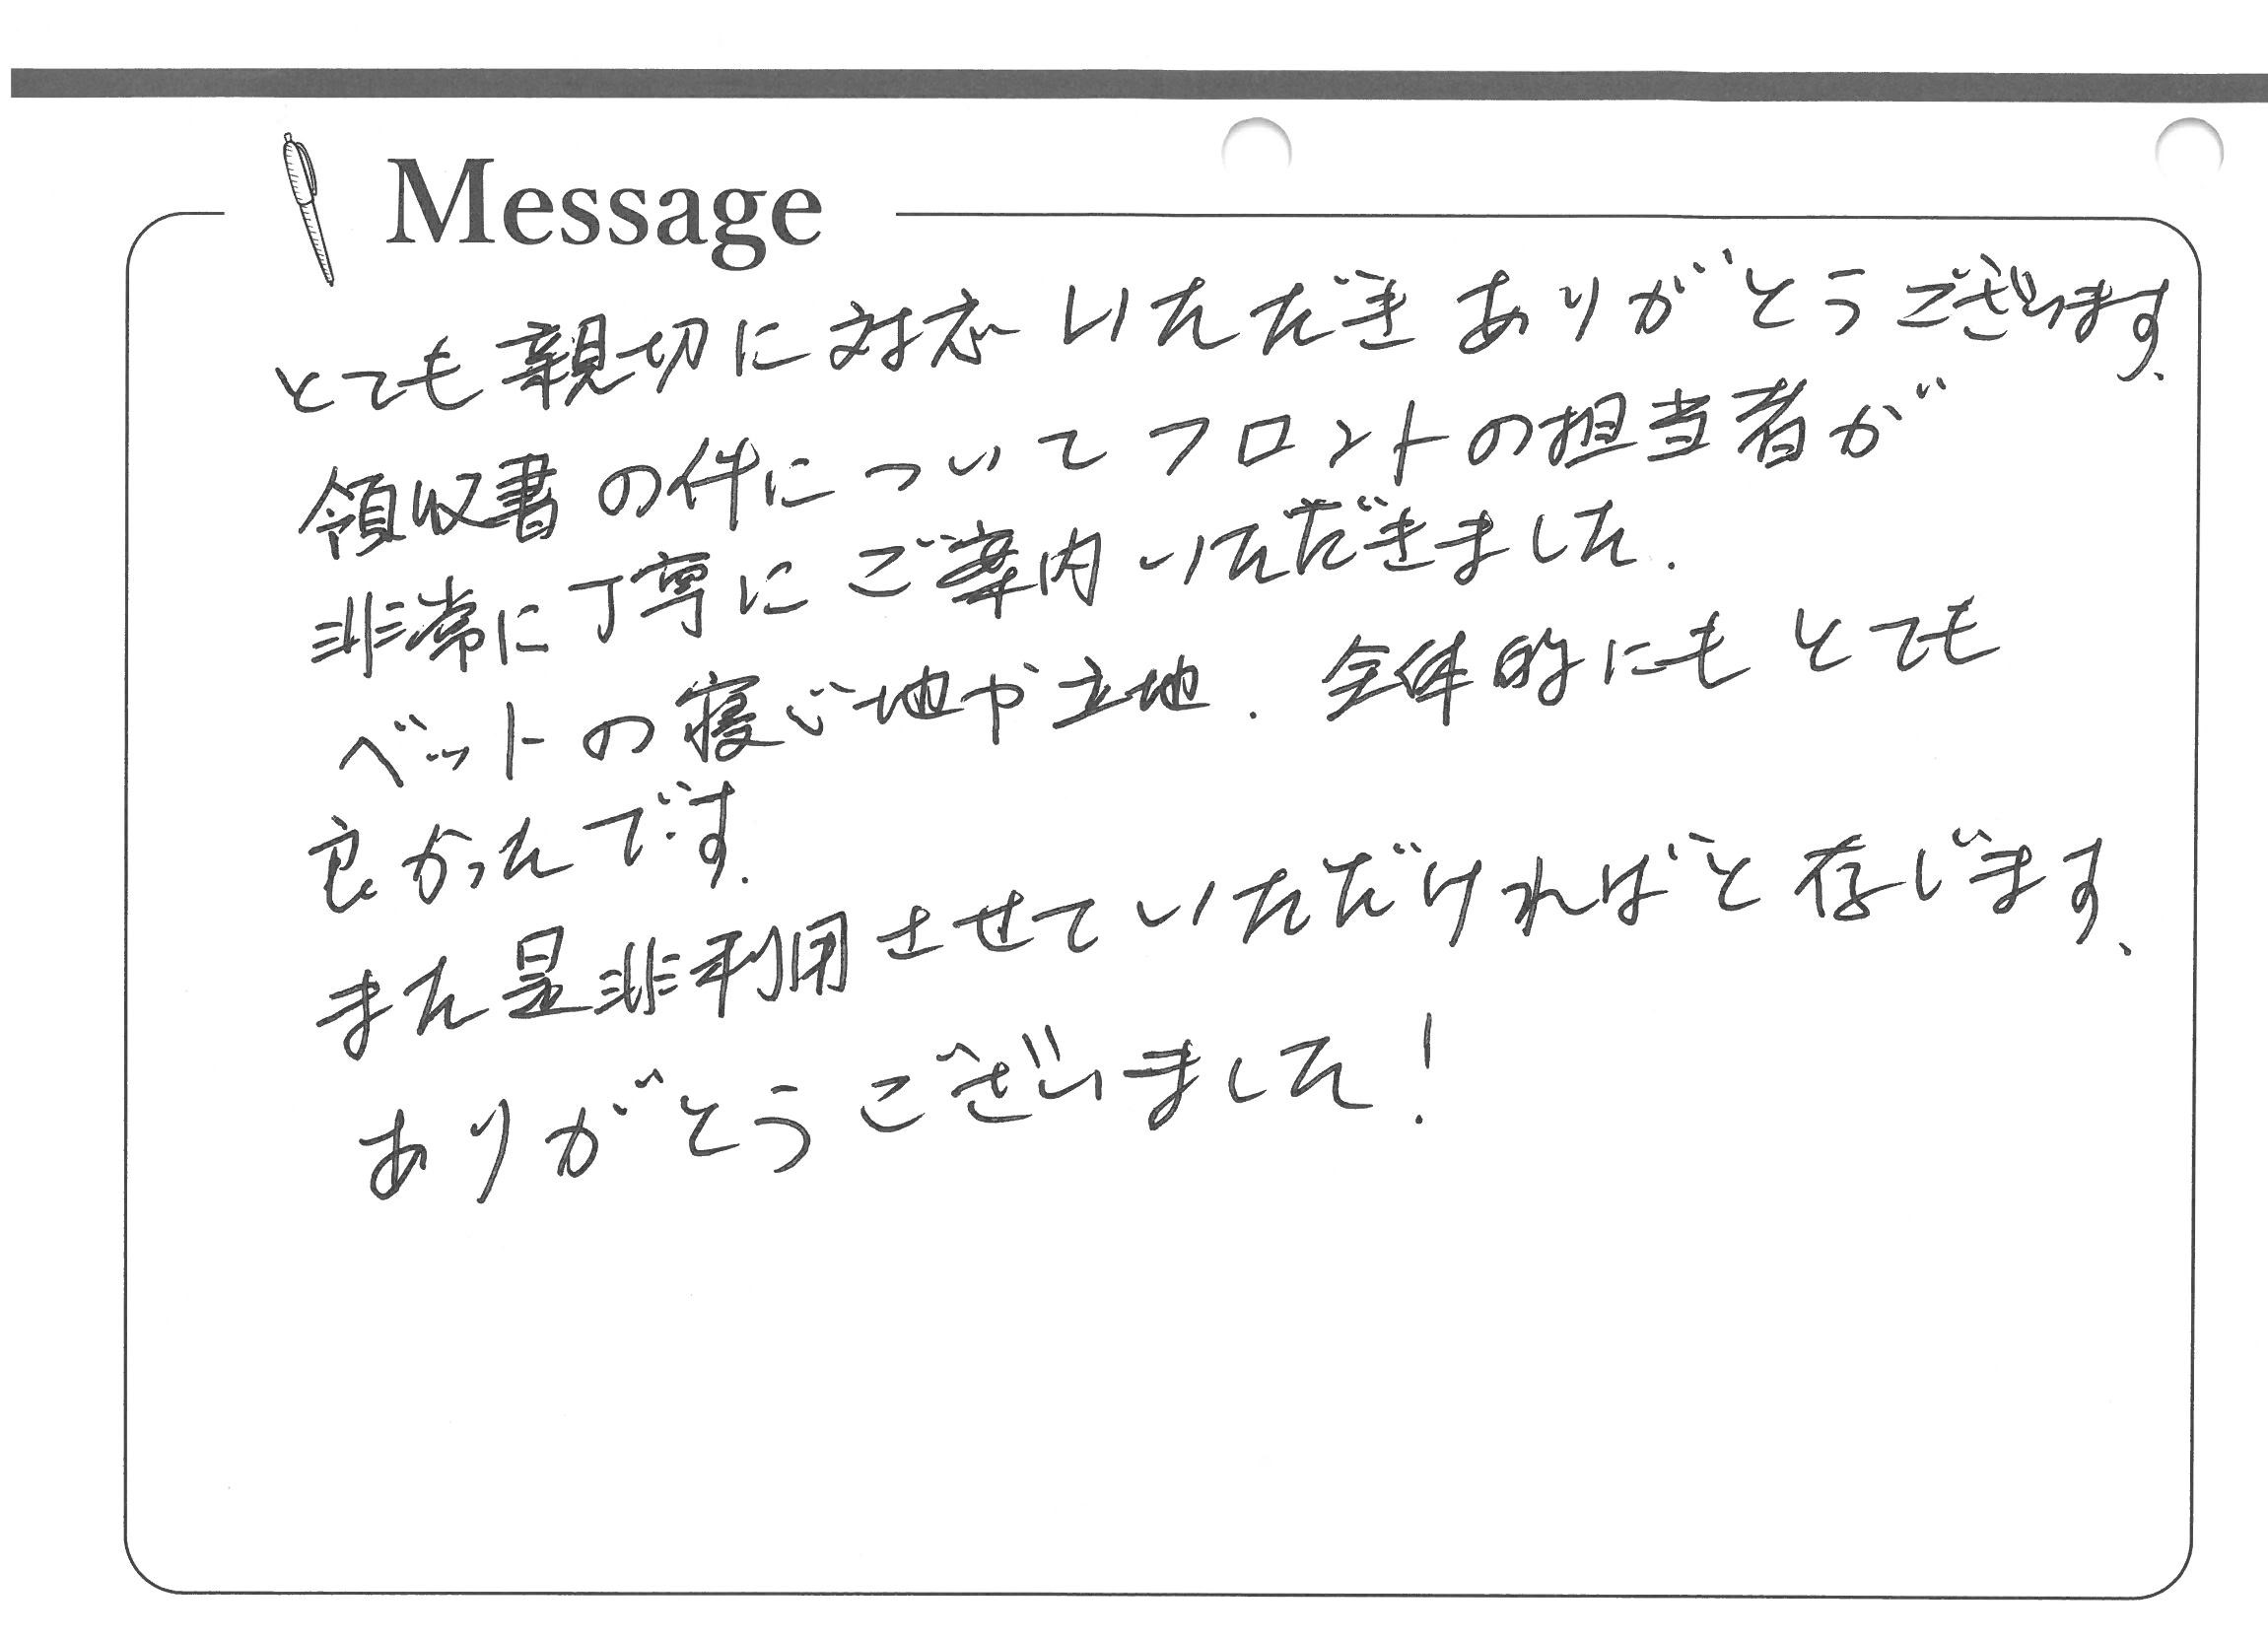 Message
とても親切に対応いただきありがとうございます.
領収書の件についてフロントの担当者が
非常に丁寧にご案内いただきました.
ベットの寝心地や立地.全体的にもとても
良かったです.
また是非利用させていただければと存じます.
ありがとうございました!